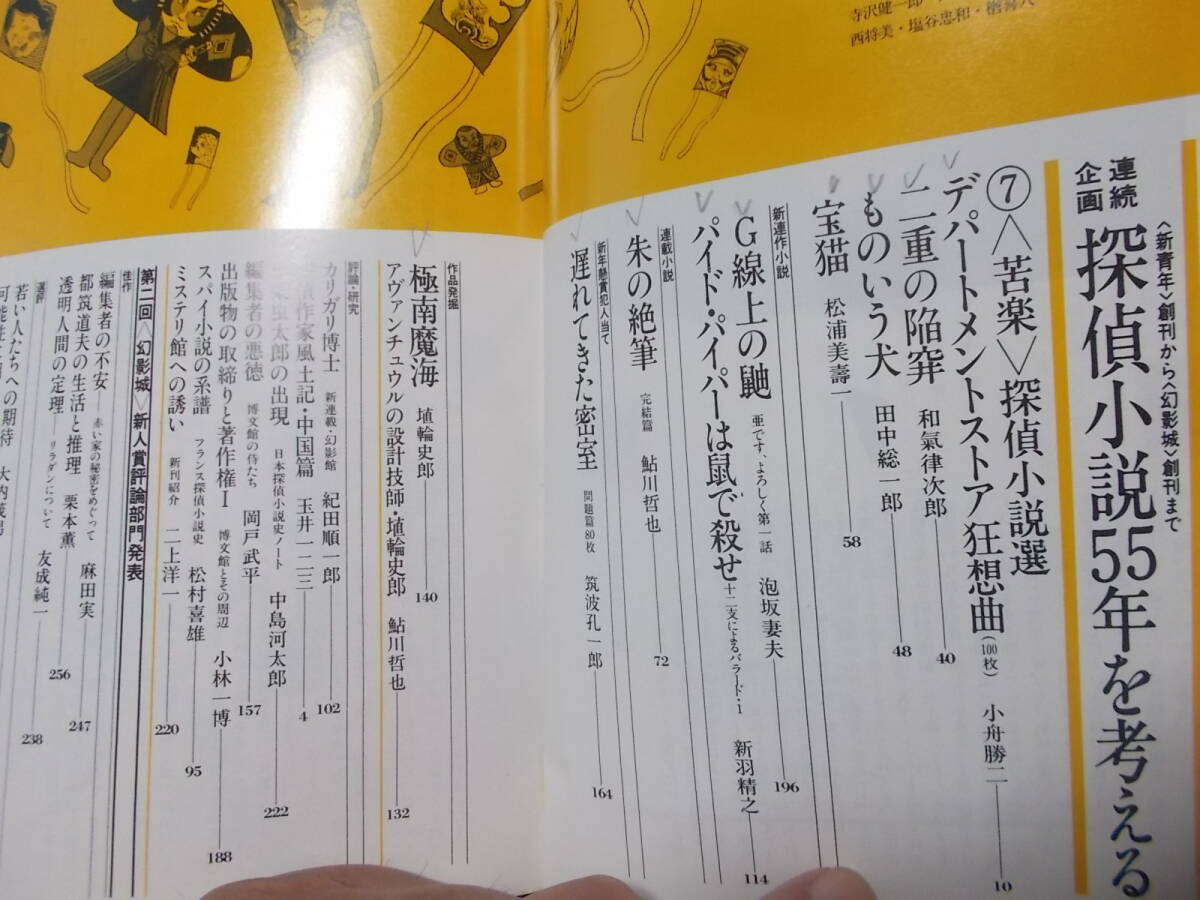 寺沢健一郎
西将美・塩谷忠和・楢喜八
連続企画
〈新青年〉創刊から〈幻影城〉創刊まで
探偵小説55年を考える
⑦〈苦楽〉探偵小説選
デパートメントストア狂想曲(100枚) 小舟勝二 10
二重の陥穽 和氣律次郎 40
ものいう犬 田中総一郎 48
宝猫 松浦美壽一 58
新連作小説
G線上の鼬 亜です、よろしく第一話 泡坂妻夫 196
パイド・パイパーは鼠で殺せ 十二支によるバラード・i 新羽精之 114
連載小説
朱の絶筆 完結篇 鮎川哲也 72
新年懸賞犯人当て
遅れてきた密室 問題篇80枚 筑波孔一郎 164
作品発掘
極南魔海 埴輪史郎 140
アヴァンチュウルの設計技師・埴輪史郎 鮎川哲也 132
評論・研究
カリガリ博士 新連載・幻影館 紀田順一郎 102
作家風土記・中国篇 玉井一二三 4
虫太郎の出現 日本探偵小説史ノート 中島河太郎 222
編集者の悪徳 博文館の侍たち 岡戸武平 157
出版物の取締りと著作権I 博文館とその周辺 小林一博 188
スパイ小説の系譜 フランス探偵小説史 松村喜雄 95
ミステリ館への誘い 新刊紹介 二上洋一 220
第二回〈幻影城〉新人賞評論部門発表
佳作
編集者の不安 赤い家の秘密をめぐって 麻田実 247
都筑道夫の生活と推理 栗本薫 256
透明人間の定理 リラダンについて 友成純一 238
選評
若い人たちへの期待 大内茂男